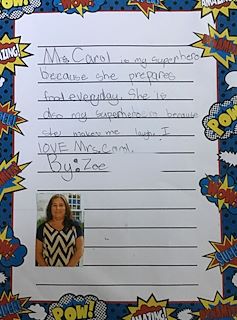 Ms. Carol is my superhero
because she prepares
food everyday. She is
also my superhero because
she makes me laugh. I
LOVE Mrs. Carol.
By: Zoe
AMAZING!
POW!
POW!
AMAZING!